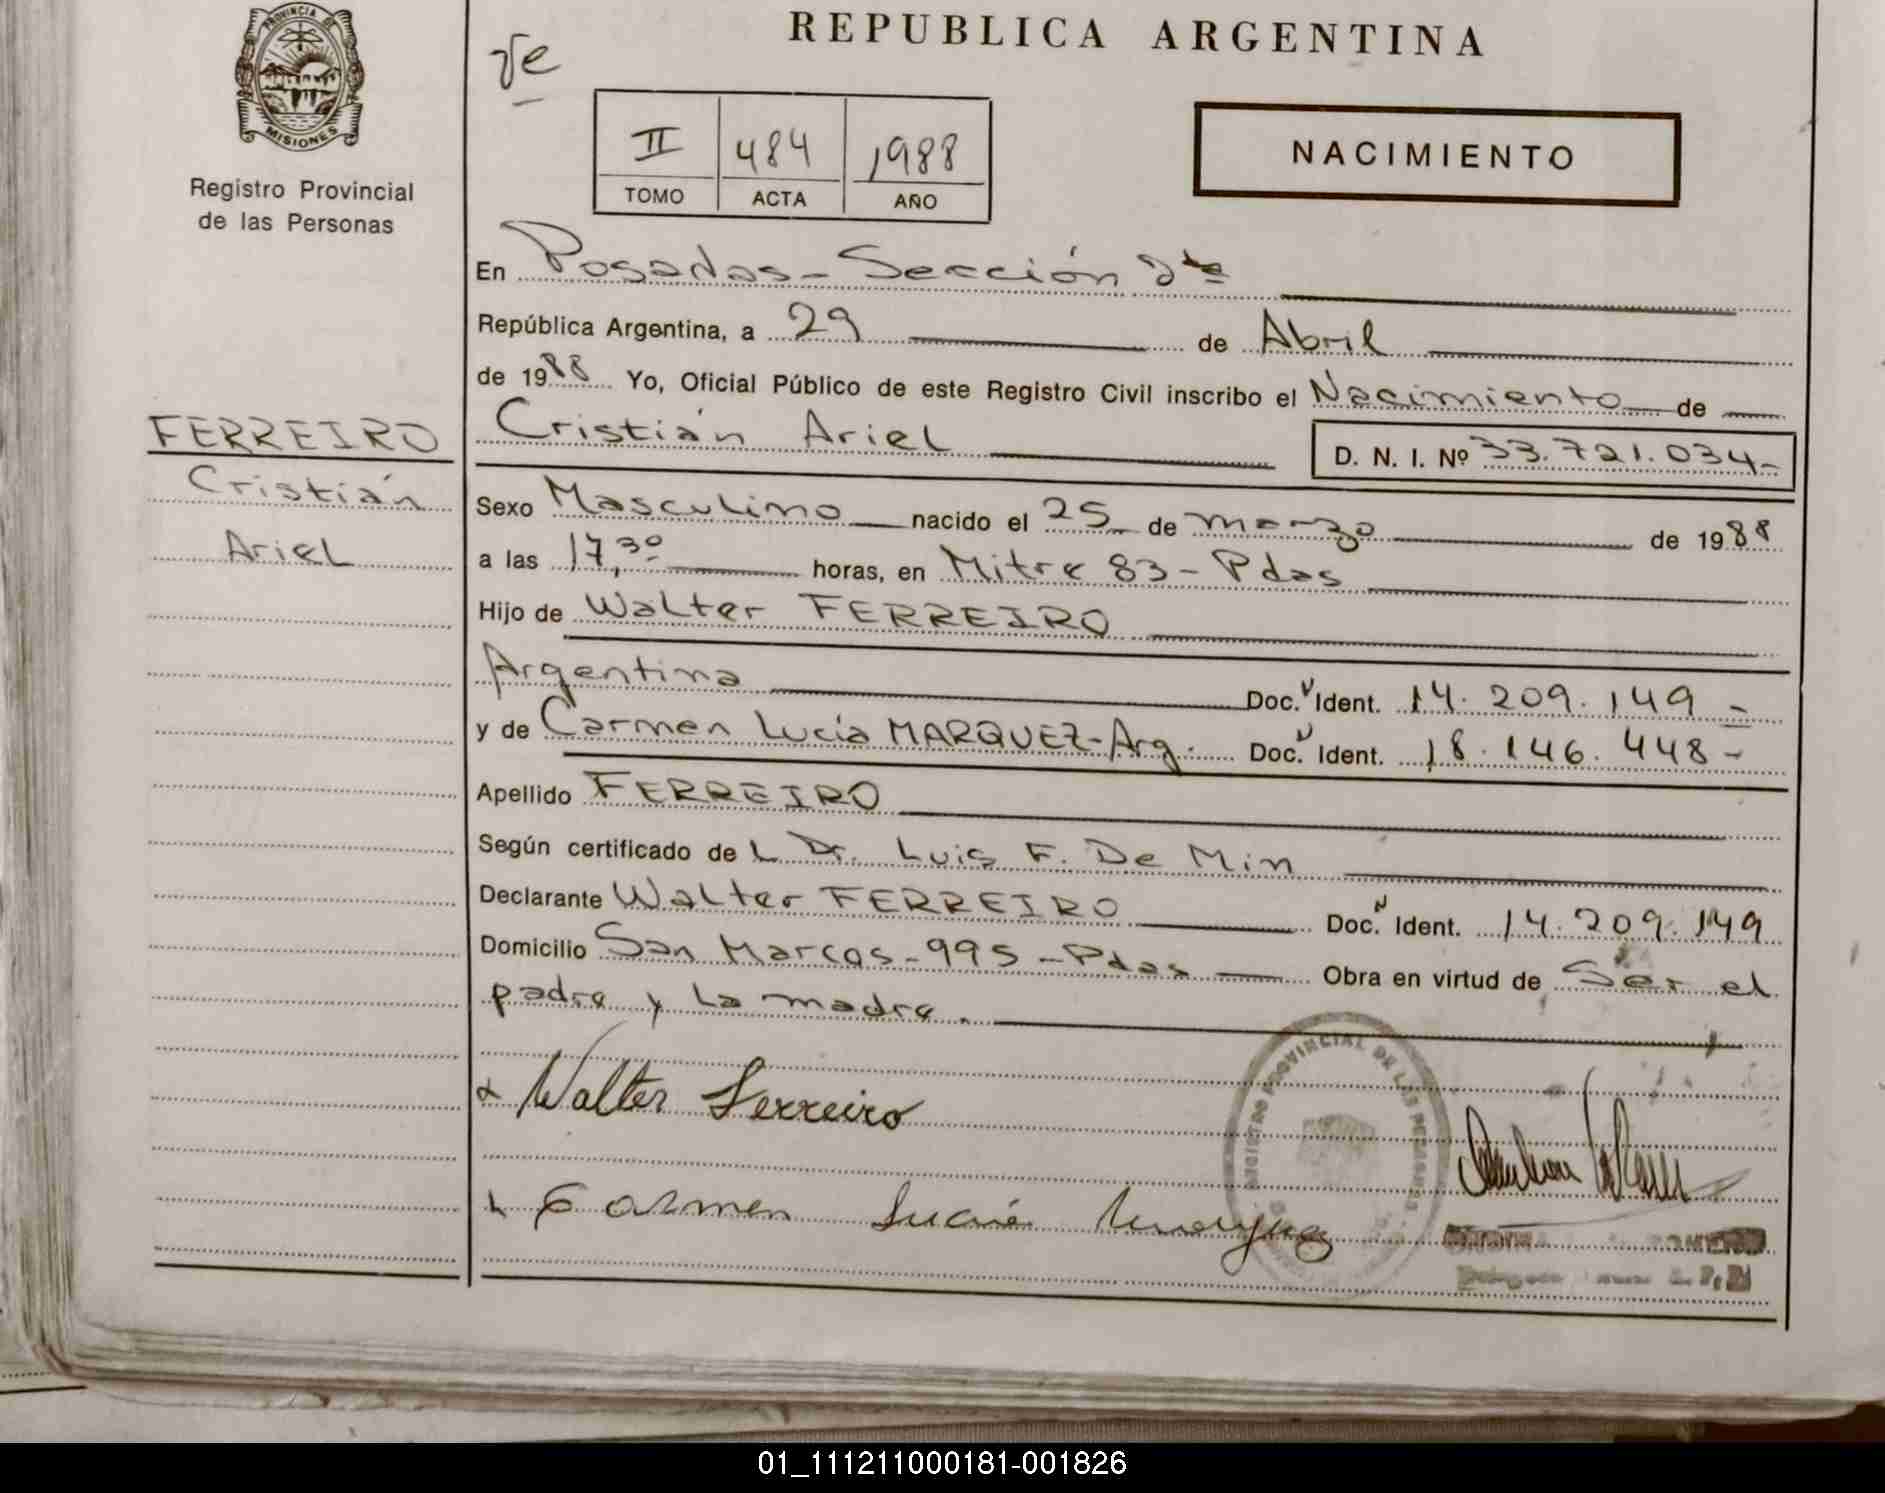 PROVINCIA DE
MISIONES
Registro Provincial
de las Personas
FERREIRO
Cristián
Ariel
REPUBLICA ARGENTINA
II 484 1988
TOMO ACTA AÑO
NACIMIENTO
En Posadas - Sección 2da
República Argentina, a 29 de Abril
de 1988 Yo, Oficial Público de este Registro Civil inscribo el Nacimiento de
Cristián Ariel D. N. I. Nº 33.721.034-
Sexo Masculino nacido el 25 de marzo de 1988
a las 17,30 horas, en Mitre 83 - Pdas
Hijo de Walter FERREIRO
Argentina Doc. Ident. 14.209.149-
y de Carmen Lucía MARQUEZ-Arg. Doc. Ident. 18.146.448-
Apellido FERREIRO
Según certificado de L Dr. Luis F. De Min
Declarante Walter FERREIRO Doc. Ident. 14.209.149
Domicilio San Marcos - 995 - Pdas Obra en virtud de Ser el
padre y La madre.
REGISTRO PROVINCIAL DE LAS PERSONAS
Walter Ferreiro
Carmen Lucía Marquez
01_111211000181-001826